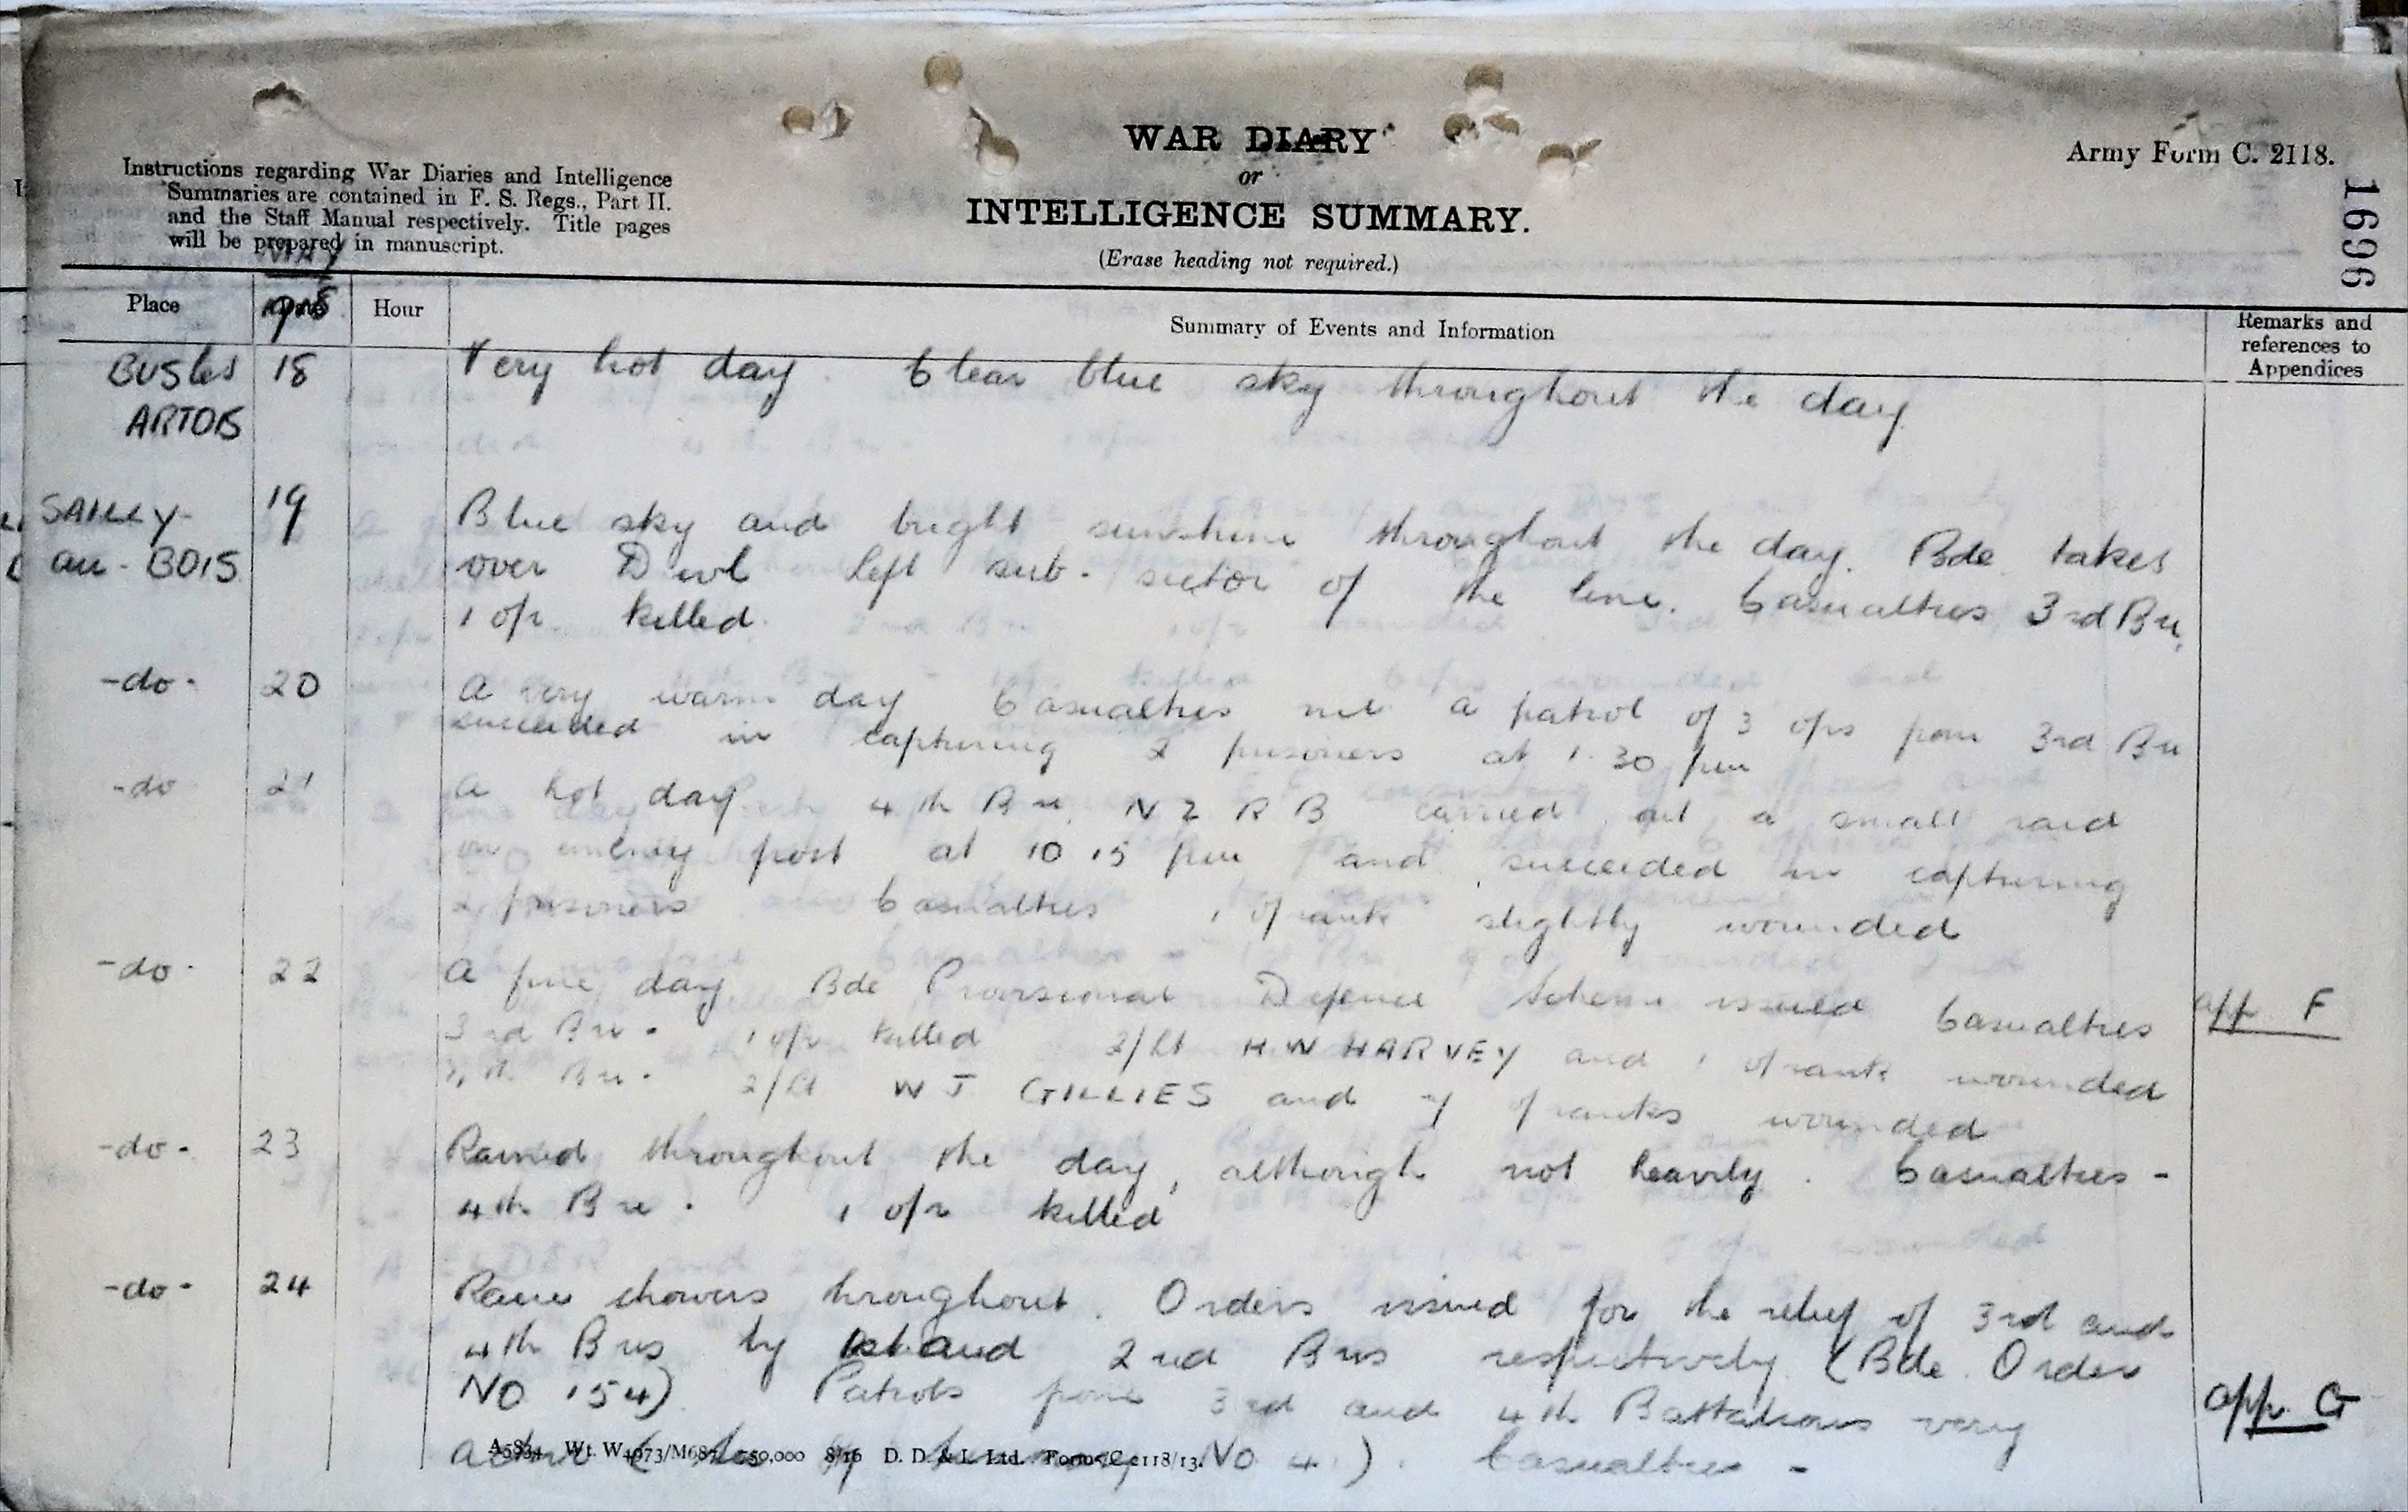 WAR DIARY
or
INTELLIGENCE SUMMARY.
(Erase heading not required.)
Army Form C. 2118.
1696
Instructions regarding War Diaries and Intelligence
Summaries are contained in F. S. Regs., Part II.
and the Staff Manual respectively. Title pages
will be prepared in manuscript.
MAY
1918
Place
Hour
Summary of Events and Information
Remarks and
references to
Appendices
BUS les 18 Very hot day. Clear blue sky throughout the day
ARTOIS
SAILLY- 19 Blue sky and bright sunshine throughout the day. Bde takes
au-BOIS over Divl left sub-sector of the line. Casualties 3rd Bn,
1 o/r killed.
-do- 20 A very warm day Casualties nil a patrol of 3 o/rs from 3rd Bn
succeeded in capturing 2 prisoners at 1.30 pm
-do 21 A hot day 4th Bn. N Z R B carried out a small raid
on enemy post at 10 15 pm and succeeded in capturing
2 prisoners Casualties 1 o/rank slightly wounded
-do- 22 A fine day Bde Provisional Defence Scheme issued Casualties app F
3rd Bn. 1 o/r killed 2/Lt H W HARVEY and 1 o/rank wounded
4th Bn. 2/Lt W J GILLIES and o/ranks wounded
-do- 23 Rained throughout the day, although not heavily. Casualties -
4th Bn. 1 o/r killed
-do- 24 Rain showers throughout. Orders issued for the relief of 3rd and
4th Bns by 1st and 2nd Bns respectively (Bde Order
NO 154) Patrols from 3rd and 4th Battalions very app. G
active NO 4). Casualties -
A5834 Wt. W4973/M687 750,000 8/16 D. D. & L. Ltd. Forms/C.2118/13.